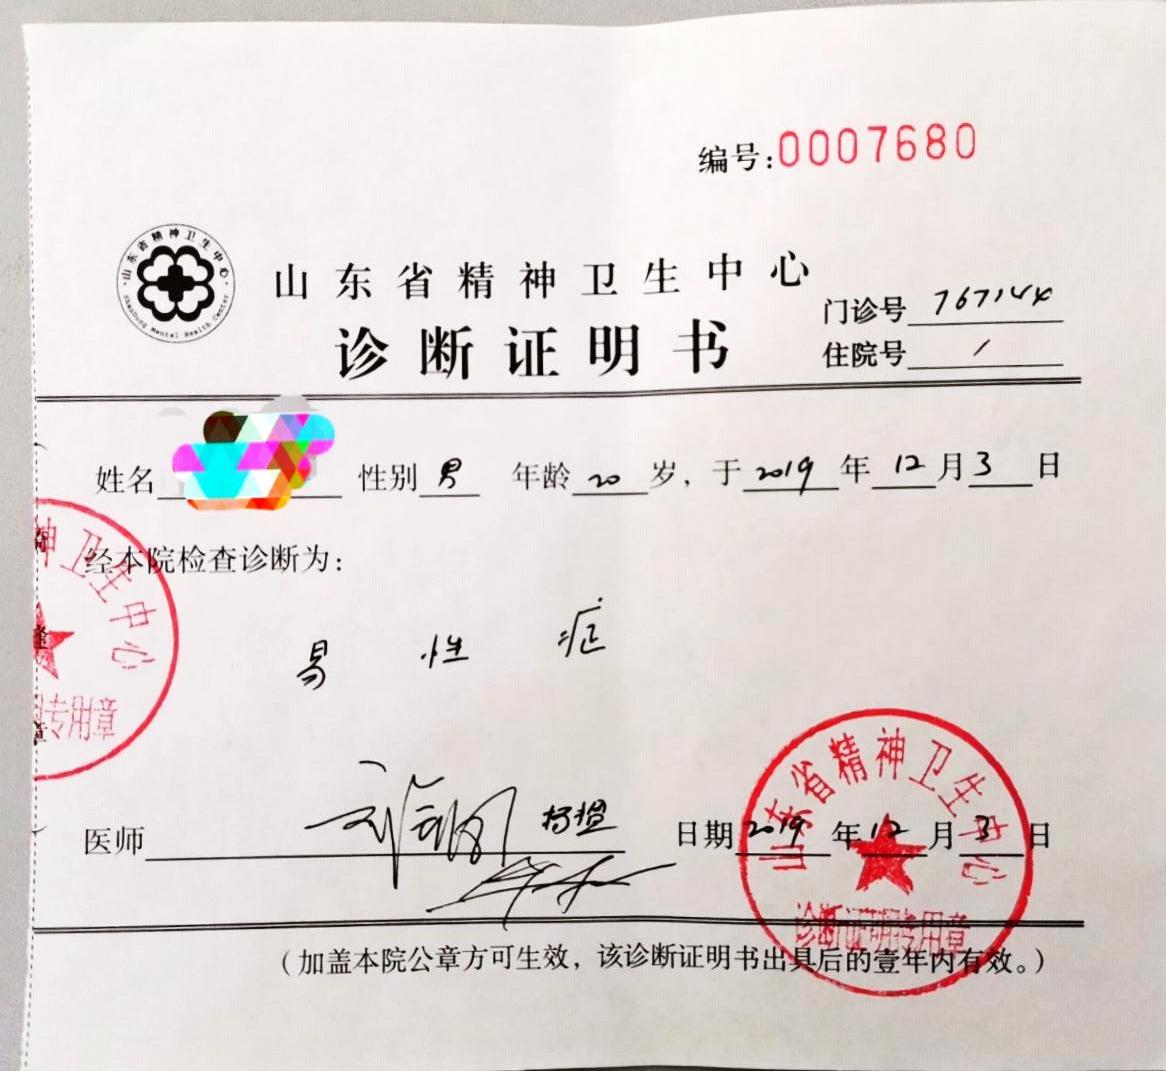 编号:0007680
山东省精神卫生中心
Shandong Mental Health Center
山东省精神卫生中心
门诊号 767144
诊断证明书
住院号 /
姓名 性别 男 年龄 20 岁，于 2019 年 12 月 3 日
经本院检查诊断为：
神卫生中心
专用章
易性症
医师 日期 2019 年 12 月 3 日
山东省精神卫生中心
诊断证明专用章
（加盖本院公章方可生效，该诊断证明书出具后的壹年内有效。）